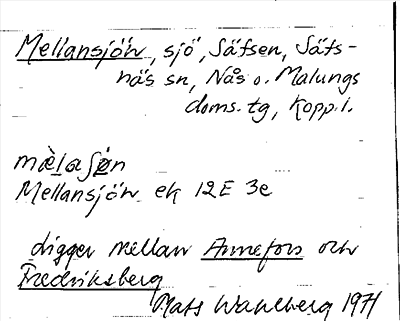 Mellansjön, sjö, Säfsen, Säfs-
näs sn, Nås o. Malungs
doms. tg, Kopp. l.
Mellansjön ek 12E 3e
ligger mellan Annefors och
Fredriksberg
Mats Wahlberg 1971